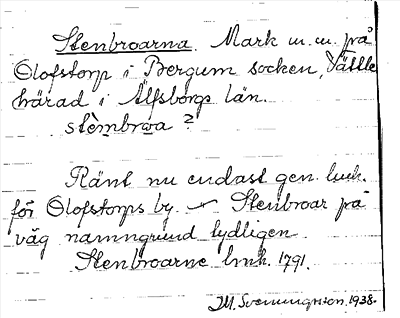 Stenbroarna. Mark m.m. på
Olofstorp i Bergum socken, Vättle
härad i Älfsborgs län.
stèmbrwa ?
Känt nu endast gen. lmh.
för Olofstorps by. – Stenbroar på
väg namngrund tydligen
Stenbroarne lmh. 1791.
J.M. Svenningsson. 1938.